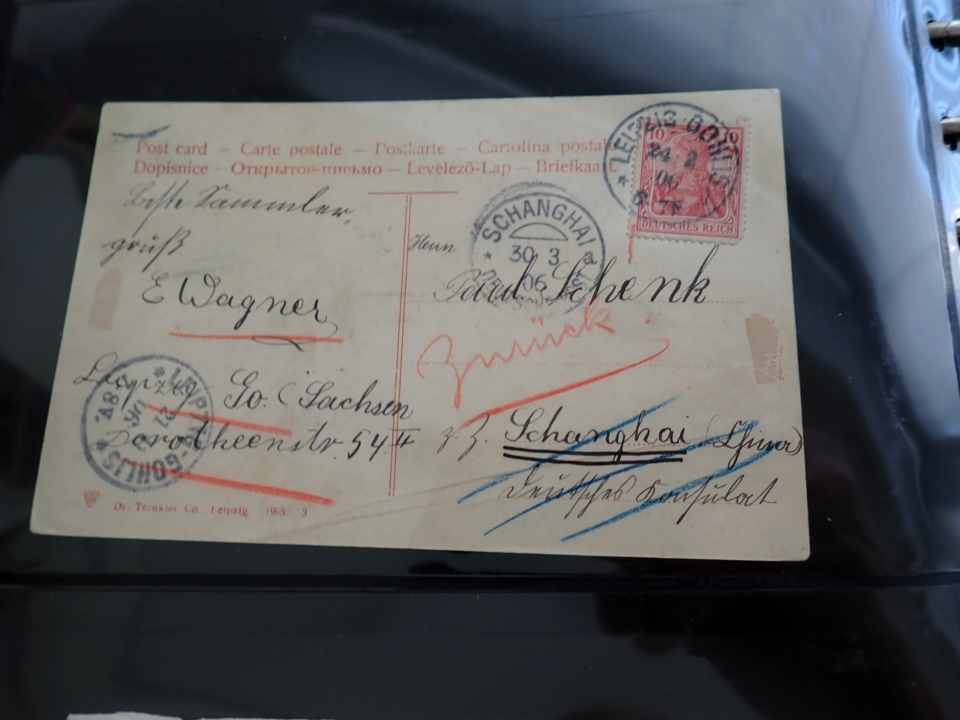 Post card – Carte postale – Postkarte – Cartolina postale
Dopisnice – Открытое письмо – Levelező-Lap – Briefkaart
LEIPZIG GOHLIS
24 2
06
10
DEUTSCHES REICH
Beste Sammler,
gruß
E Wagner
Leipzig Go. (Sachsen
Dorotheenstr. 54 II
SCHANGHAI
30 3
06
Herrn
Paul Schenk
Zurück
z. Z. Schanghai (China)
Deutsches Konsulat
LEIPZIG-GOHLIS
8V.
Dr. Trenkler Co., Leipzig. 1905